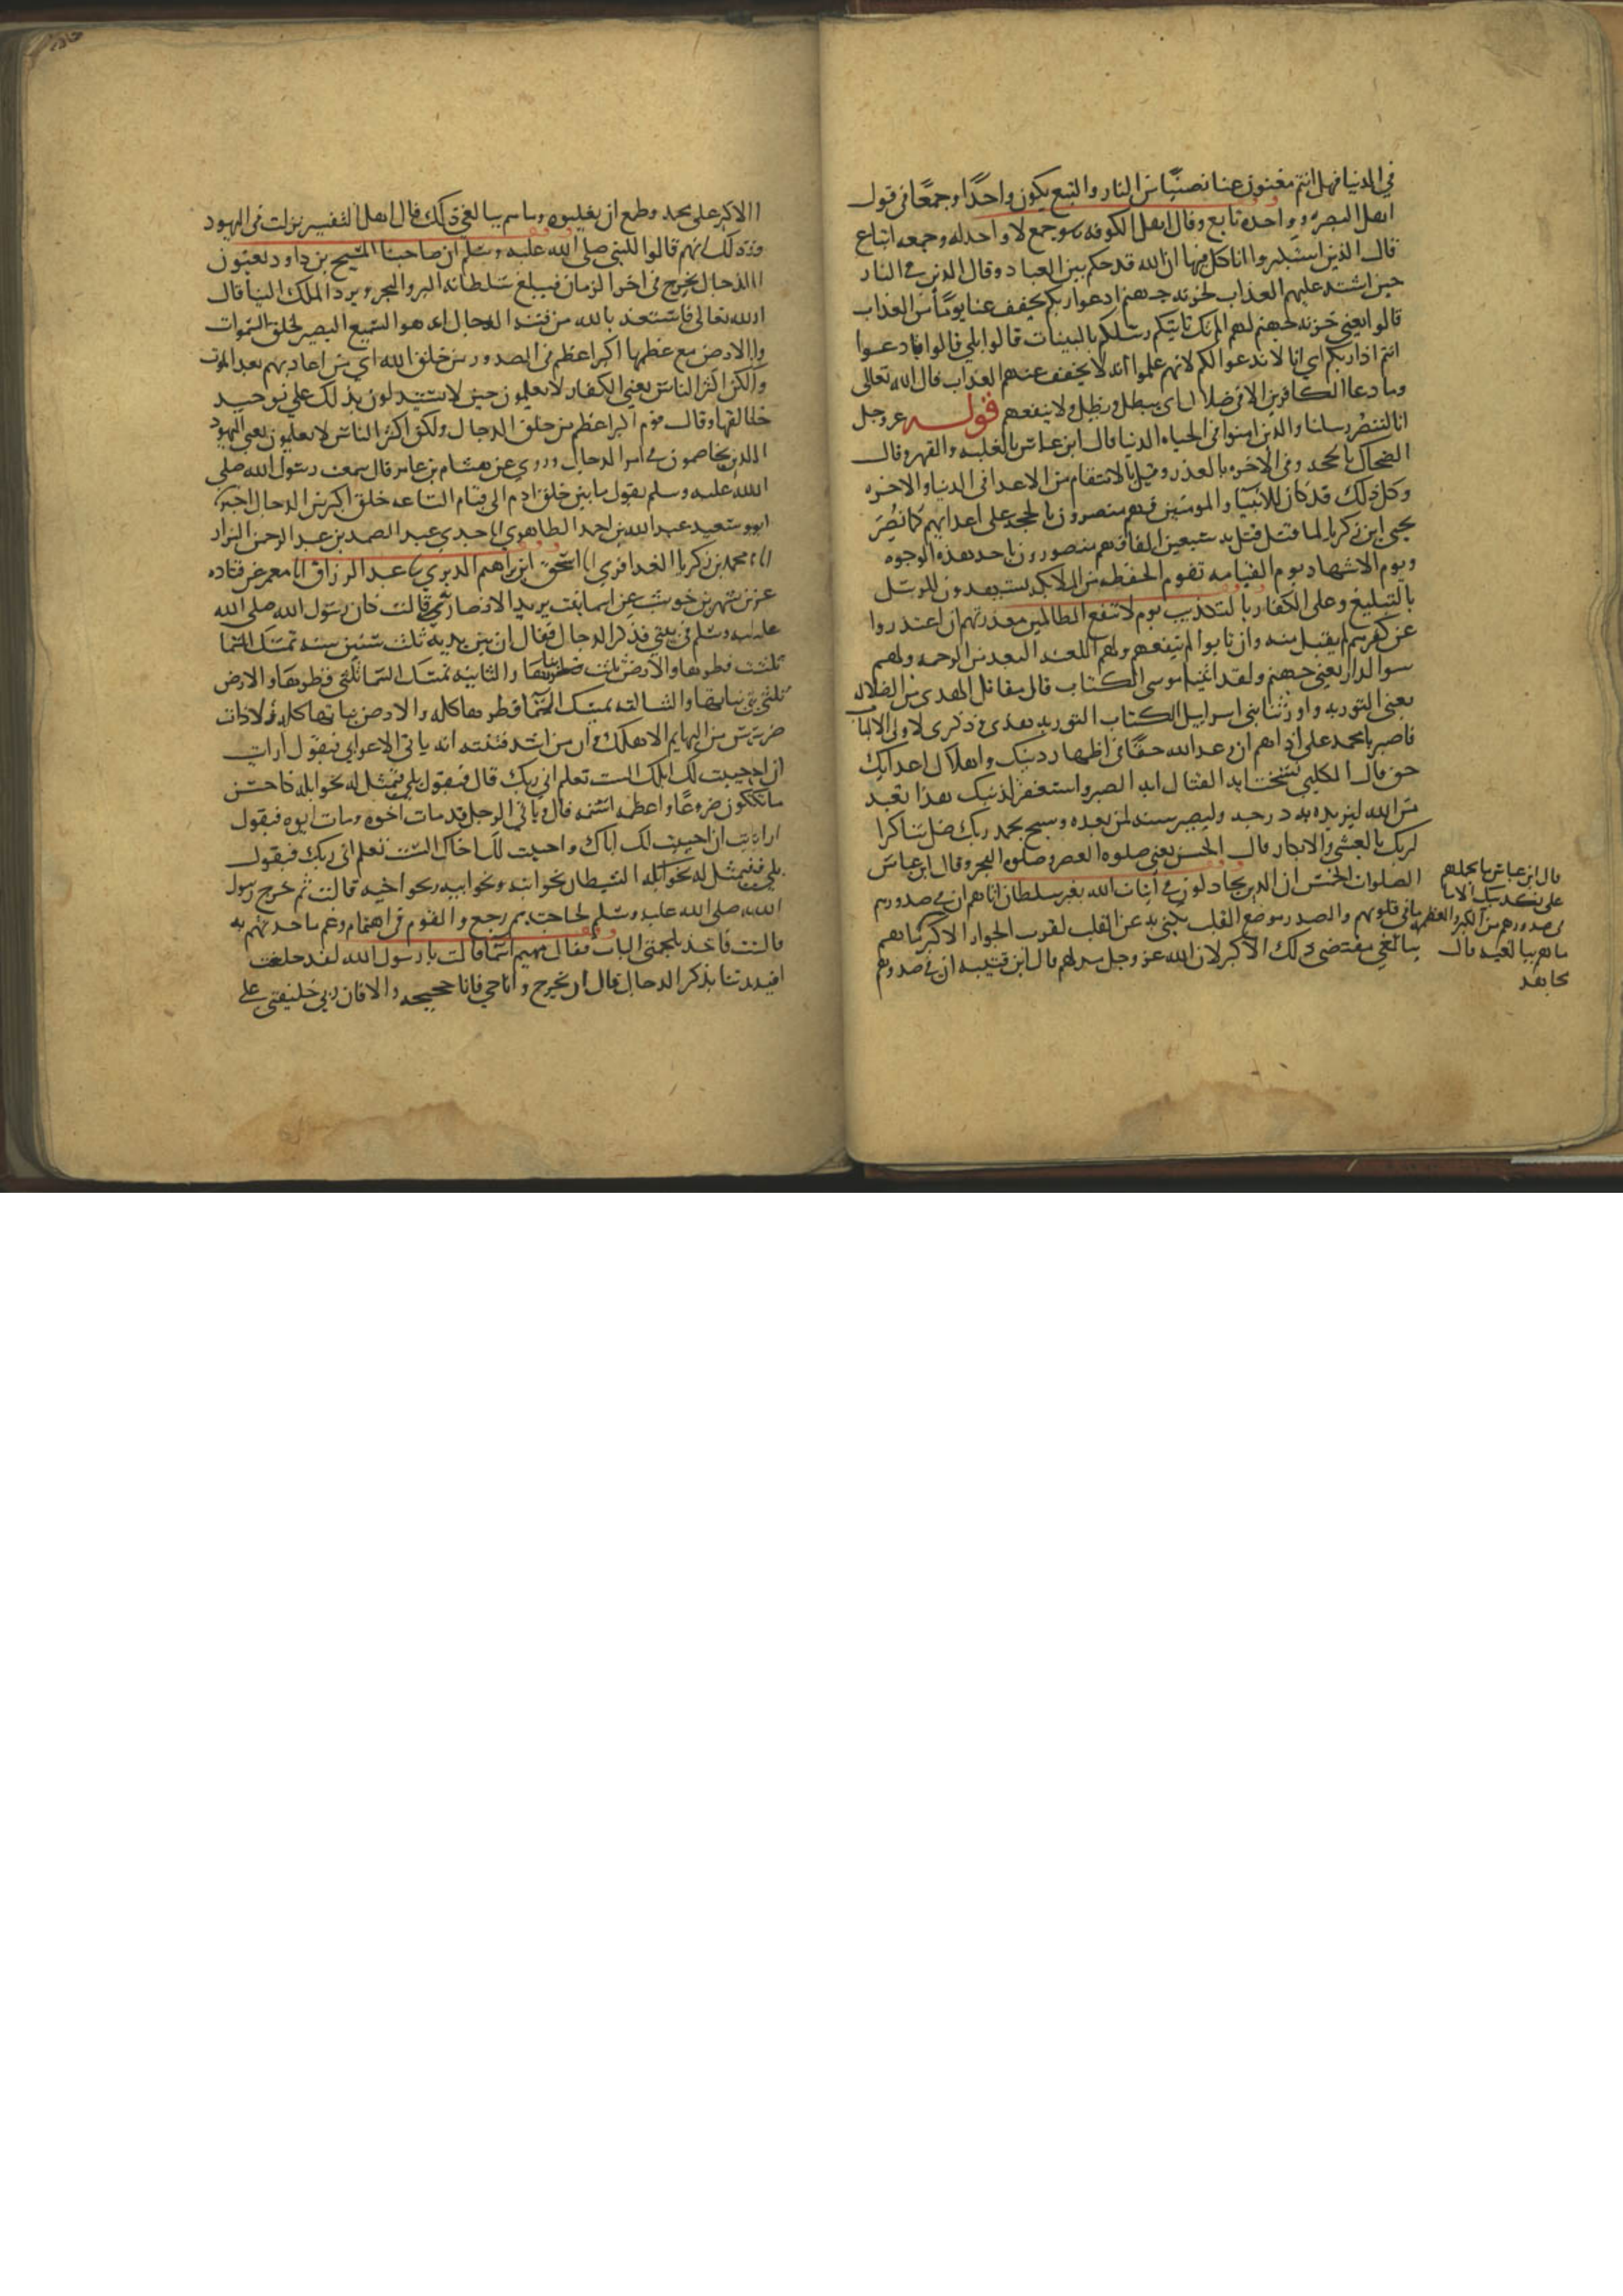 في الدنيا فهل انتم مغنون عنا نصيبا من النار والتبع يكون واحدا وجمعا في قول
اهل البصره وواحده تابع وقال اهل الكوفه هو جمع لا واحد له وجمعه اتباع
قال الذين استكبروا انا كل فيها ان الله قد حكم بين العباد وقال الذين في النار
حين اشتد عليهم العذاب لخزنه جهنم ادعوا ربكم يخفف عنا يوما من العذاب
قالوا يعني خزنه جهنم لهم الم تك تاتيكم رسلكم بالبينات قالوا بلي قالوا فادعوا
انتم اذا ربكم اي انا لا ندعوا لكم لانهم علموا انه لا يخفف عنهم العذاب قال الله تعالى
وما دعا الكافرين الا في ضلال اي يبطل ويظل ولا ينفعهم قوله عز وجل
انا لننصر رسلنا والذين امنوا في الحياه الدنيا قال ابن عباس بالغلبه والقهر وقال
الضحاك بالحجه وفي الاخره بالعذر وقيل بالانتقام من الاعدا في الدنيا والاخره
وكل ذلك قد كان للانبيا والمومنين فهم منصورون بالحجه على اعدايهم كما نصر
يحيى ابن زكريا لما قتل قتل به سبعين الفا فهم منصورون باحد هذه الوجوه
ويوم الاشهاد يوم القيامه تقوم الحفظه من الملايكه يشهدون للرسل
بالتبليغ وعلى الكفار بالتكذيب يوم لا تنفع الظالمين معذرتهم ان اعتذروا
عن كفرهم لم يقبل منه وان تابوا لم ينفعهم ولهم اللعنه البعد من الرحمه ولهم
سوا الدار يعني جهنم ولقد اتينا موسى الكتاب قال مقاتل الهدى من الضلاله
يعني التوريه واورثنا بني اسراييل الكتاب التوريه هدى وذكرى لاولي الالباب
فاصبر يا محمد على اذاهم ان وعد الله حقا في اظهار دينك واهلاك اعدايك
حق قال الكلبي نسخت ايه القتال ايه الصبر واستغفر لذنبك هذا تعبد
من الله ليزيده به درجه وليصير سنه لمن بعده وسبح بحمد ربك صل شاكرا
لربك بالعشي والابكار قال الحسن يعني صلوه العصر وصلوه الفجر وقال ابن عباس
الصلوات الخمس ان الذين يجادلون في ايات الله بغير سلطان اتاهم ان في صدورهم
ما في قلوبهم والصدر موضع القلب يكنى به عن القلب لقرب الجوار الا كبر ما هم
ببالغي مقتضى ذلك الاكبر لان الله عز وجل مذلهم قال ابن قتيبه ان في صدورهم
قال ابن عباس ما يحملهم
على تكذيبك الا ما
في صدورهم من الكبر والعظمه
ما هم ببالغيه قال
مجاهد
الا كبر على محمد وطمع ان يغلبوه وما هم ببالغي ذلك قال اهل التفسير نزلت في اليهود
وذلك انهم قالوا للنبي صلى الله عليه وسلم ان صاحبنا المسيح بن داود يعنون
الدجال يخرج في اخر الزمان فيبلغ سلطانه البر والبحر ويرد الملك الينا قال
الله تعالى فاستعذ بالله من فتنه الدجال انه هو السميع البصير لخلق السموات
والارض مع عظمها اكبر اعظم في الصدور من خلق الله اي من اعادتهم بعد الموت
ولكن اكثر الناس يعني الكفار لا يعلمون حين لا يستدلون بذلك على توحيد
خالقها وقال قوم اكبر اعظم من خلق الدجال ولكن اكثر الناس لا يعلمون يعني اليهود
الذين يخاصمون في امر الدجال وروي عن هشام بن عامر قال سمعت رسول الله صلى
الله عليه وسلم يقول ما بين خلق ادم الى قيام الساعه خلق اكبر من الدجال اخبرنا
ابو سعيد عبد الله بن احمد الطاهري انا جدي عبد الصمد بن عبد الرحمن البزاز
انا محمد بن زكريا الغدافري انا اسحق ابن ابراهيم الدبري نا عبد الرزاق انا معمر عن قتاده
عن شهر بن حوشب عن اسما بنت يزيد الانصاريه قالت كان رسول الله صلى الله
عليه وسلم في بيتي فذكر الدجال فقال ان بين يديه ثلث سنين سنه تمسك السما
ثلث قطرها والارض ثلث نباتها والثانيه تمسك السما ثلثي قطرها والارض
ثلثي نباتها والثالثه تمسك السما قطرها كله والارض نباتها كله ولا ذات
ضرس من البهايم الا هلك وان من اشد فتنته انه ياتي الاعرابي فيقول ارايت
ان احييت لك ابلك الست تعلم اني ربك قال فيقول بلي فيمثل له نحو ابله كاحسن
ما تكون ضروعا واعظمه اسنمه قال وياتي الرجل قد مات اخوه ومات ابوه فيقول
ارايت ان احييت لك اباك واحييت لك اخاك الست تعلم اني ربك فيقول
بلي فيمثل له الشيطان نحو ابيه ونحو اخيه قالت ثم خرج رسول
الله صلى الله عليه وسلم لحاجته ثم رجع والقوم في اهتمام وغم ما حدثهم به
قالت فاخذ بلجمتي الباب فقال مهيم اسما قالت يا رسول الله لقد خلعت
افيدتنا بذكر الدجال قال ان يخرج وانا حي فانا حجيجه والا فان ربي خليفتي على